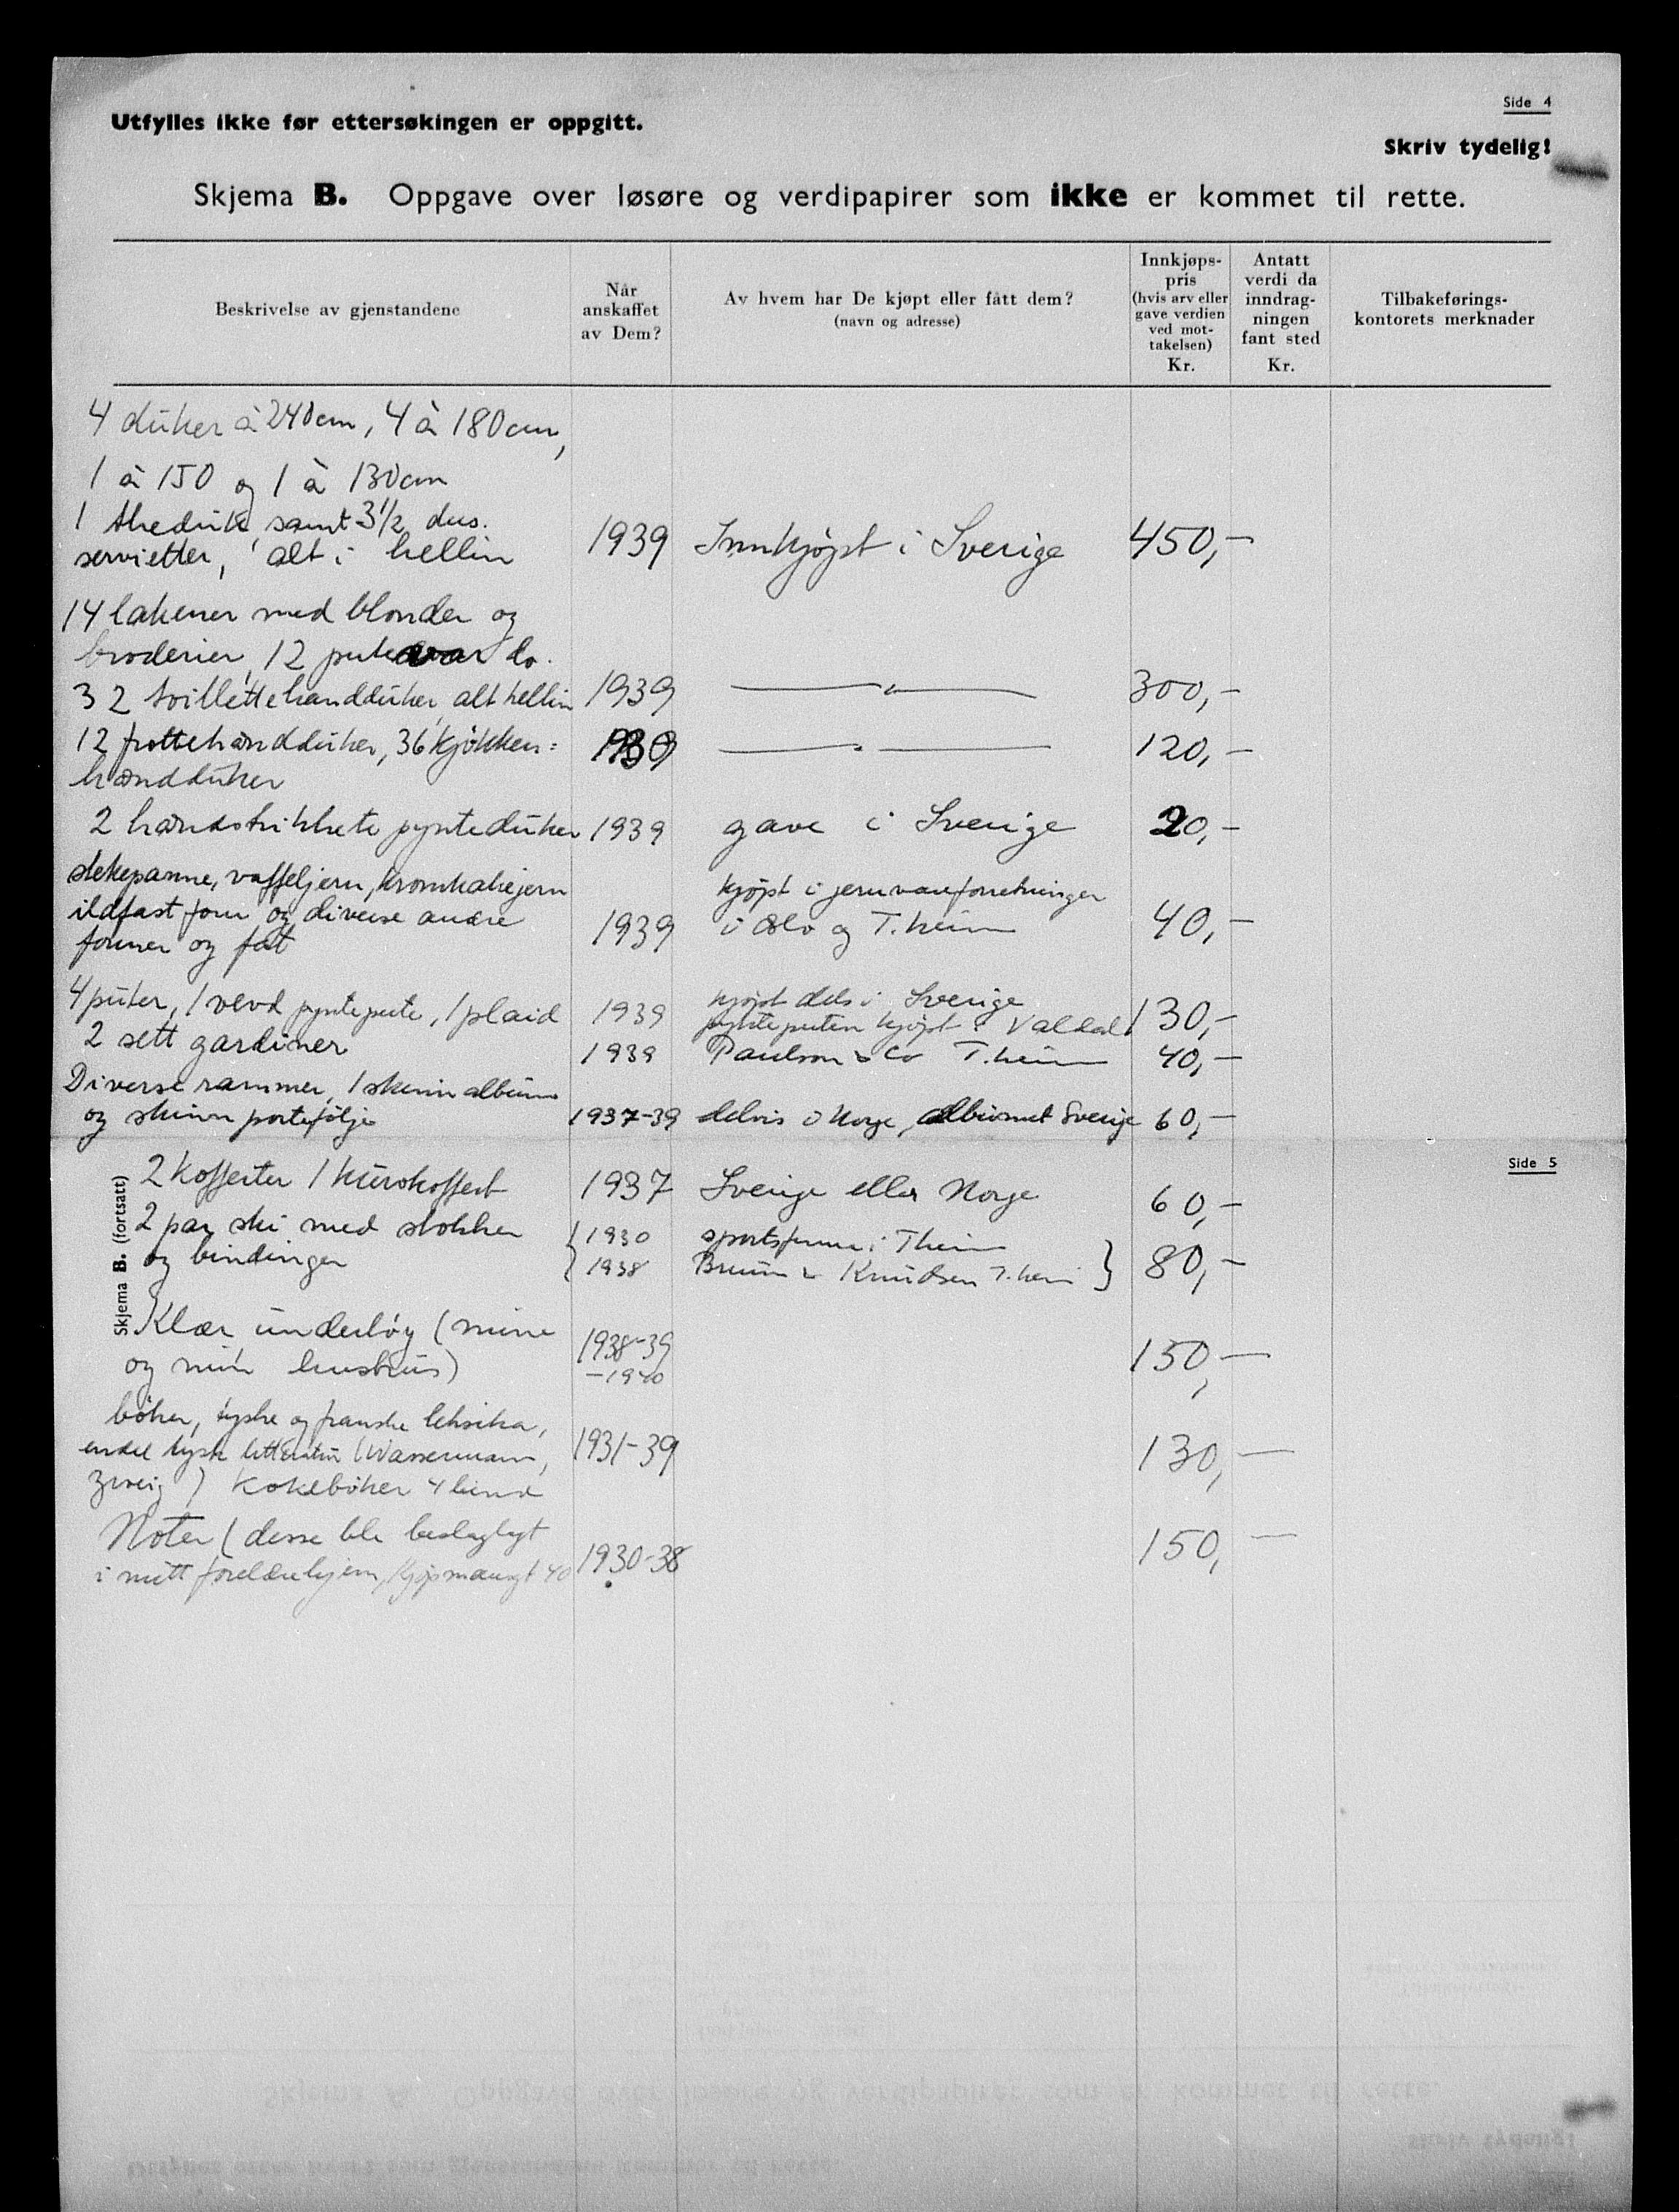 Side 4
Utfylles ikke før ettersøkingen er oppgitt.
Skriv tydelig!
Skjema B. Oppgave over løsøre og verdipapirer som ikke er kommet til rette.
Beskrivelse av gjenstandene
Når anskaffet av Dem?
Av hvem har De kjøpt eller fått dem? (navn og adresse)
Innkjøps-pris (hvis arv eller gave verdien ved mot-takelsen) Kr.
Antatt verdi da inndrag-ningen fant sted Kr.
Tilbakeførings-kontorets merknader
4 duker à 240cm, 4 à 180cm,
1 à 150 og 1 à 130cm
1 theduk, samt 3½ dus.
servietter, alt i hellin 1939 Innkjøpt i Sverige 450,-
14 lakener med blonder og
broderier, 12 putevar do.
32 toilettehandduker, alt hellin 1939 — " — 300,-
12 frottehandduker, 36 kjøkken= 1939 — " — 120,-
handduker
2 handstrikkete pynteduker 1939 gave i Sverige 20,-
stekepanne, vaffeljern, kromkakejern kjøpt i jernvareforretninger
ildfast form og diverse andre 1939 i Oslo og T.heim 40,-
former og fat
4 puter, 1 vevd pyntepute, 1 plaid 1939 kjøpt dels i Sverige 130,-
pynteputen kjøpt i Valdal
2 sett gardiner 1939 Paulson & Co T.heim 40,-
Diverse rammer, 1 skinnalbum
og skinn portefølje 1937-39 delvis i Norge, albumet Sverige 60,-
Side 5
Skjema B. (fortsatt)
2 kofferter 1 kurvkoffert 1937 Sverige eller Norge 60,-
2 par ski med stokker { 1930 sportsfirma i T.heim
og bindinger { 1938 Bruun & Knudsen T.heim } 80,-
Klær undertøy (mine 1938-39
og min hustrus) -1940 150,-
bøker, tyske og franske leksika,
endel tysk litteratur (Wassermann, 1931-39 130,-
Zweig) Kokebøker 4 bind
Noter (desse ble beslaglagt
i mitt foreldrehjem, Kjøpmannsgt 40 1930-38 150,-